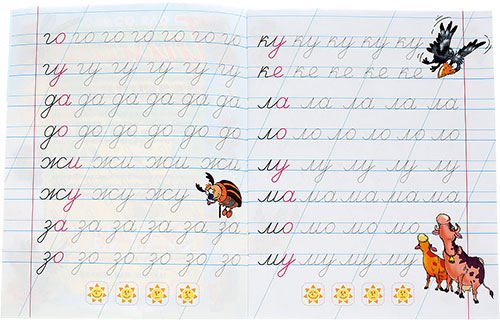 го го го го го го го
гу гу гу гу гу гу
да да да да да да
до до до до до до
жи жи жи жи
жу жу жу
за за за за за за
зо зо зо зо зо зо
ку ку ку ку ку
ке ке ке ке ке
ла ла ла ла ла
ло ло ло ло ло ло
лу лу лу лу лу
ма ма ма ма ма ма
мо мо мо мо мо
му му му му